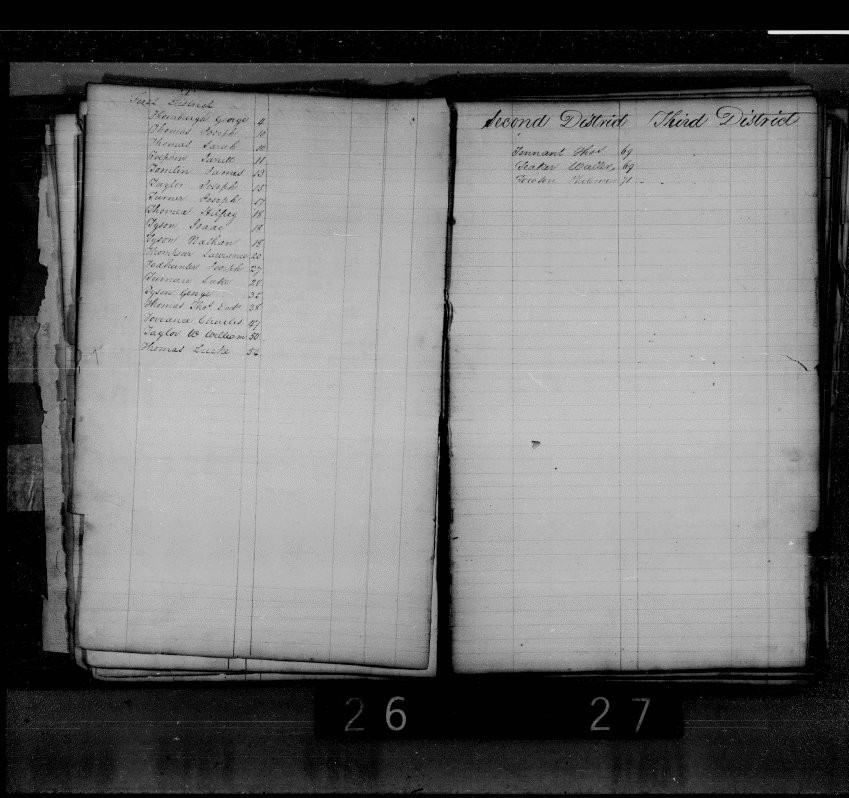 First District
Thornburgh George 4
Thomas Joseph 10
Thomas Sarah 10
11
Tomlin James 13
Taylor Joseph 15
Turner Joseph 17
Thomas 18
Tyson Isaac 18
Tyson Nathan 18
Thompson Lawrance 20
Todhunter Joseph 27
Luke 28
Tyson George 32
Thomas Thos 38
Torrance Charles 47
Taylor W William 50
Thomas 52
Second District Third District
Tennant Thos 69
Walter 69
Towson 71
26
27